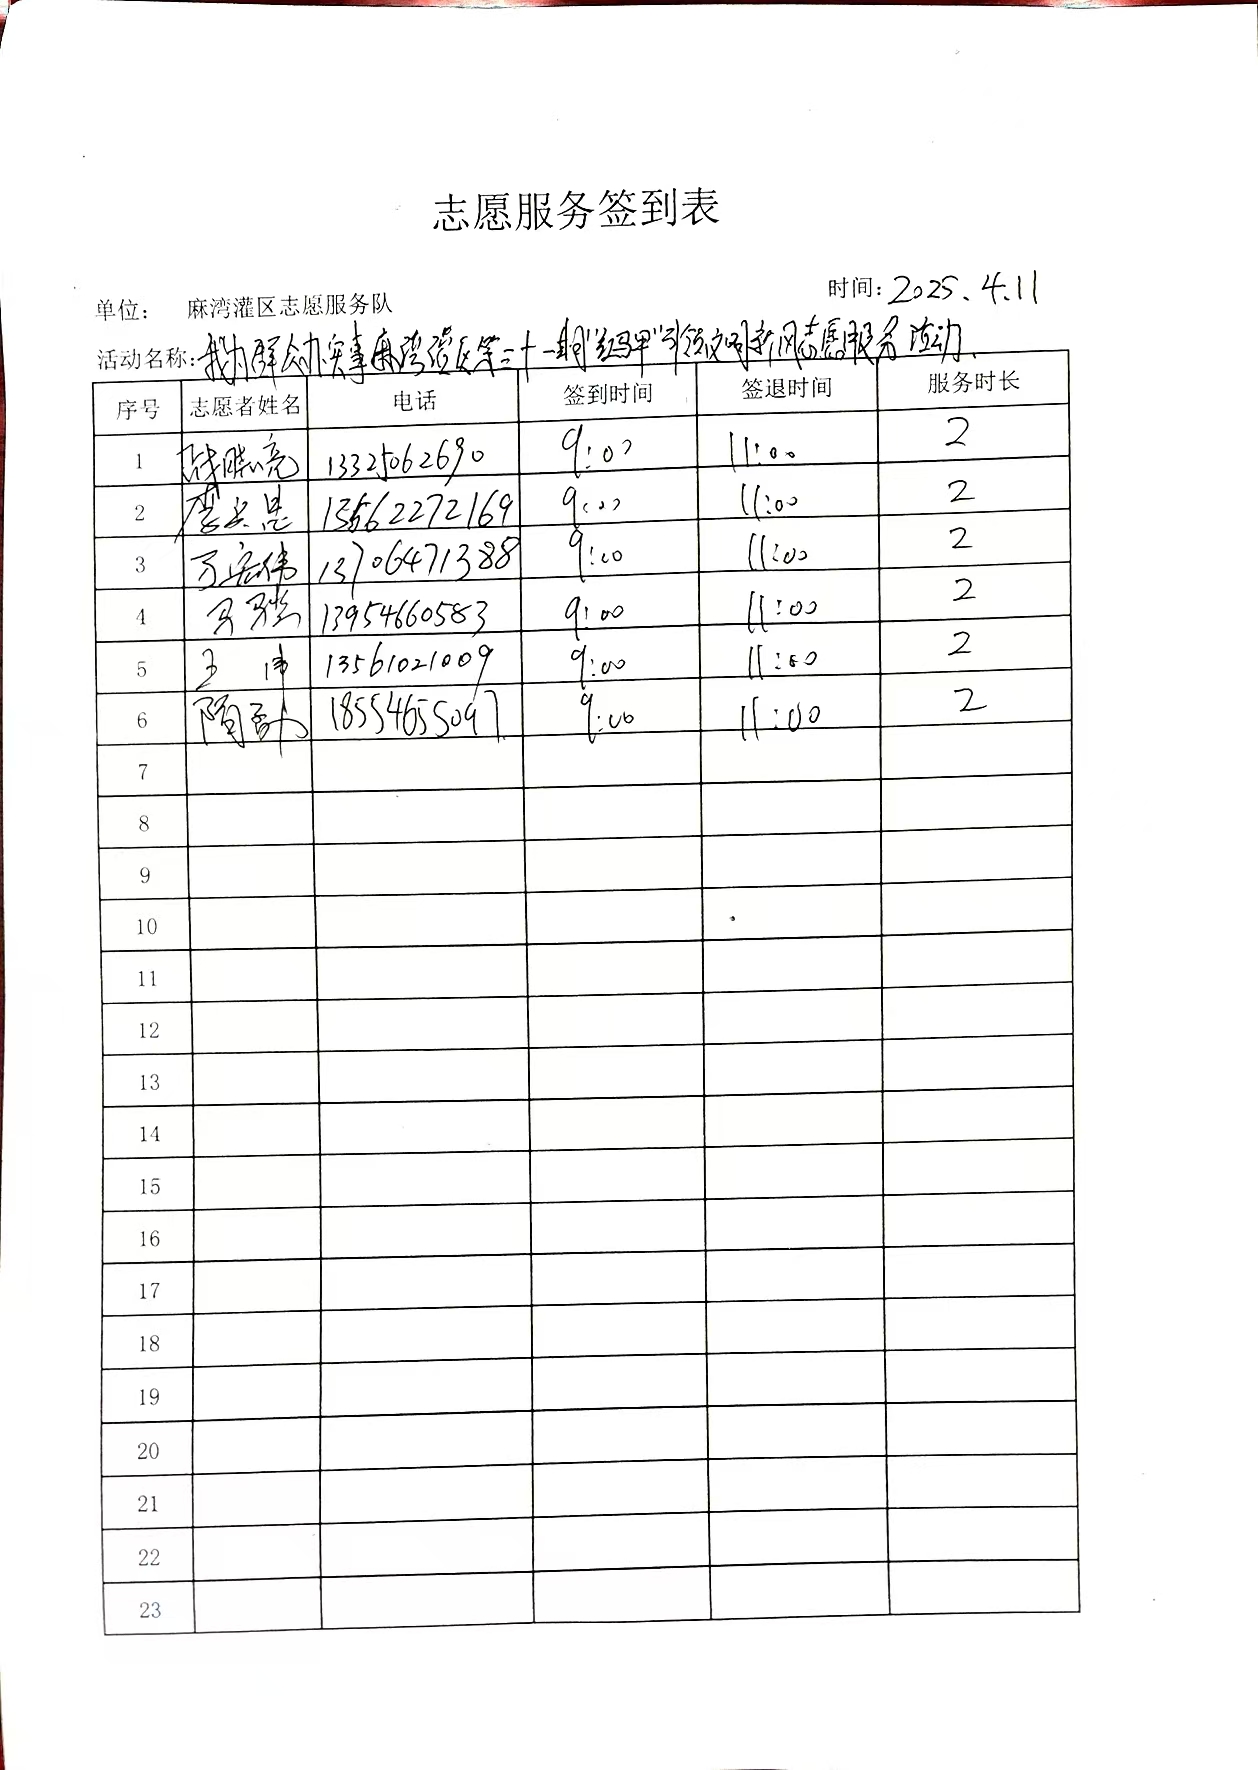 志愿服务签到表
单位： 麻湾灌区志愿服务队 时间：2025.4.11
活动名称：我为群众办实事麻湾灌区第三十一期"红马甲"引领文明新风志愿服务活动.
序号 志愿者姓名 电话 签到时间 签退时间 服务时长
1 晓亮 13325062690 9:00 11:00 2
2 李 13562272169 9:00 11:00 2
3 万宏伟 13706471388 9:00 11:00 2
4 13954660583 9:00 11:00 2
5 王伟 13561021009 9:00 11:00 2
6 隋 18554655097 9:00 11:00 2
7
8
9
10
11
12
13
14
15
16
17
18
19
20
21
22
23